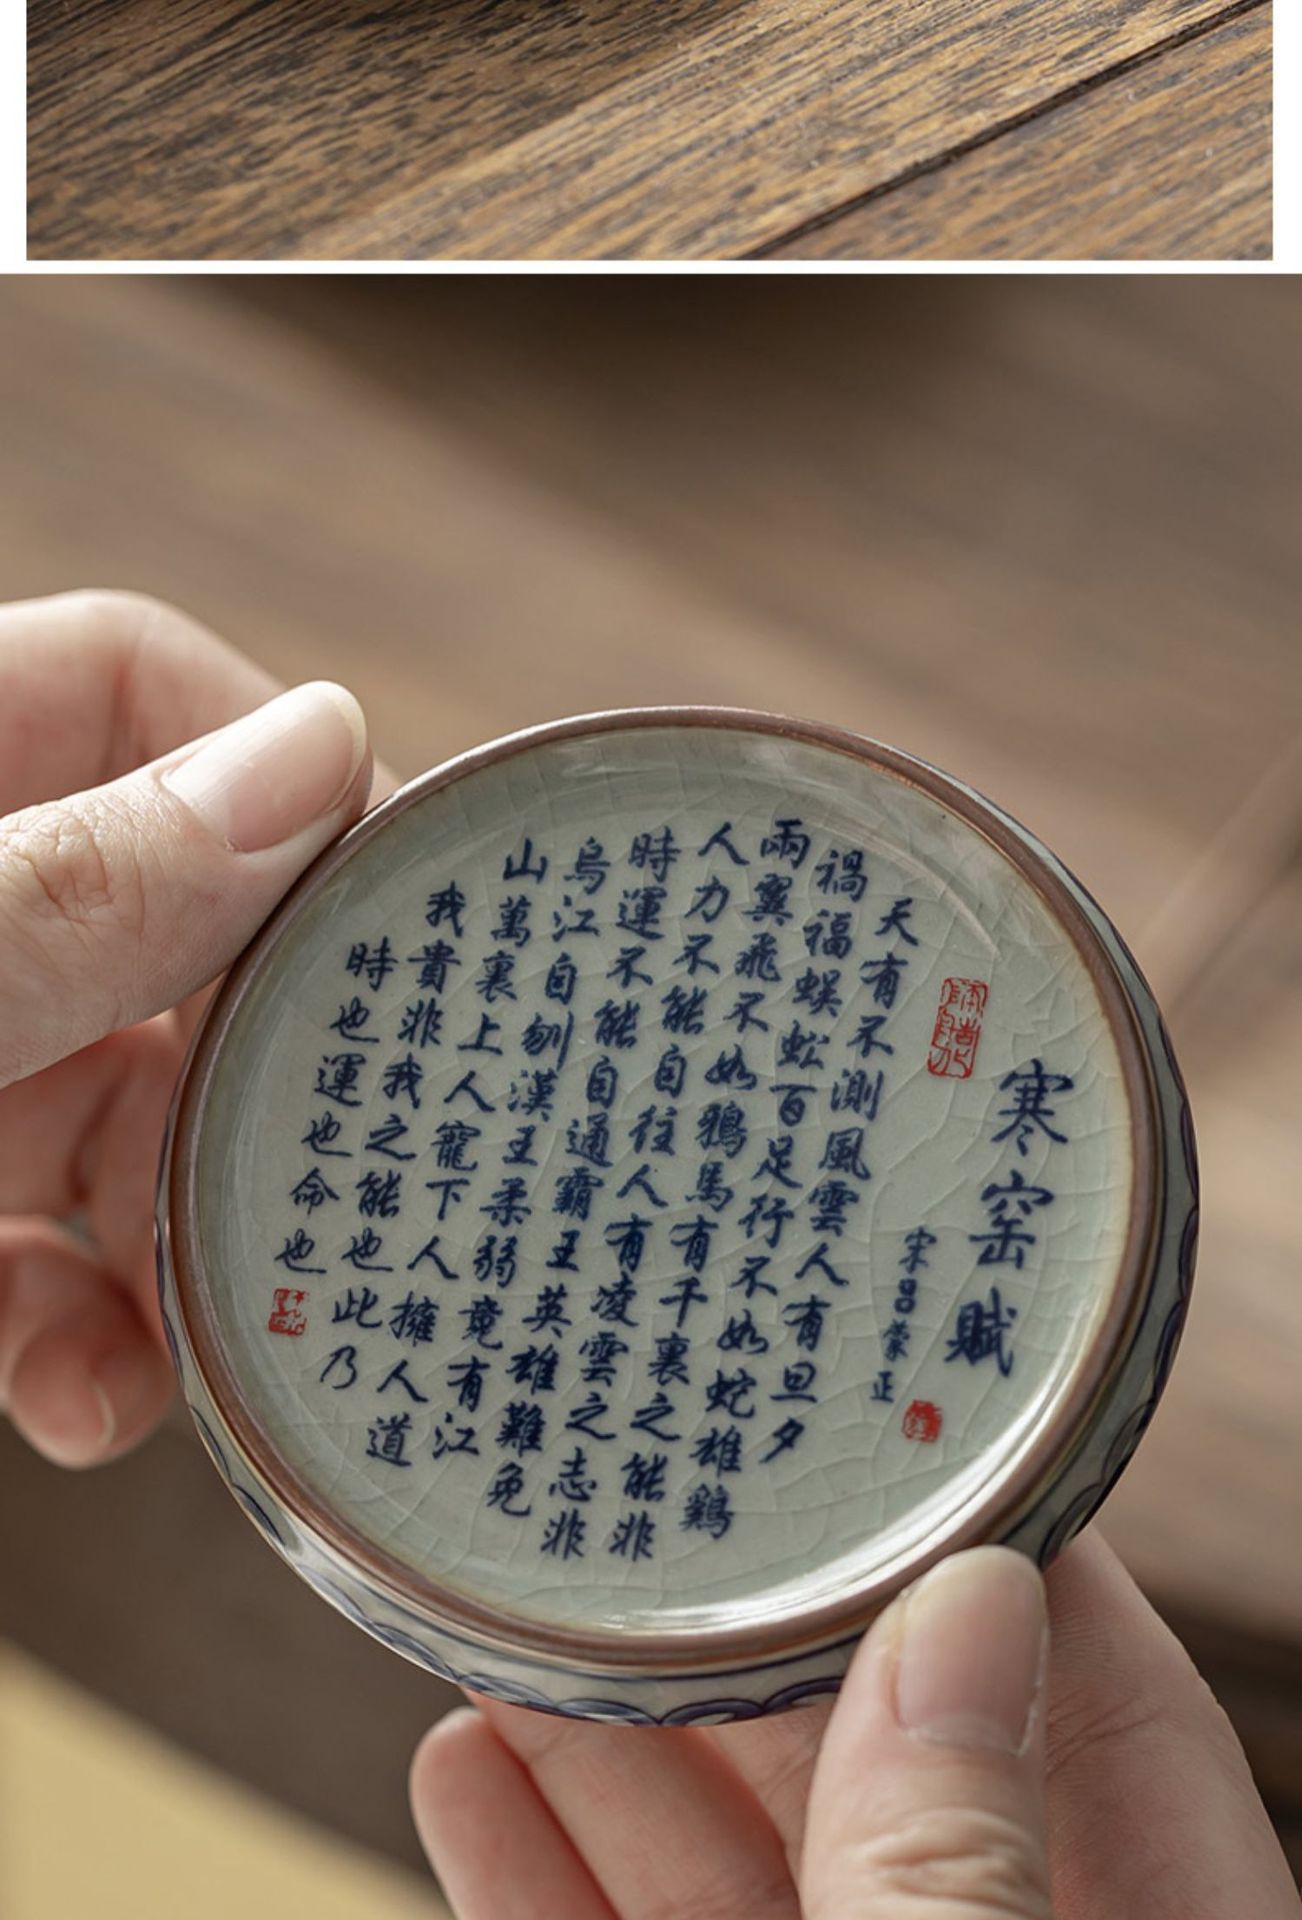 寒窑賦
宋呂蒙正
天有不測風雲人有旦夕
禍福蜈蚣百足行不如蛇雄鷄
兩翼飛不如鴉馬有千裏之能非
人力不能自往人有凌雲之志非
時運不能自通霸王英雄難免
烏江自刎漢王柔弱竟有江
山萬裏上人寵下人擁人道
我貴非我之能也此乃
時也運也命也